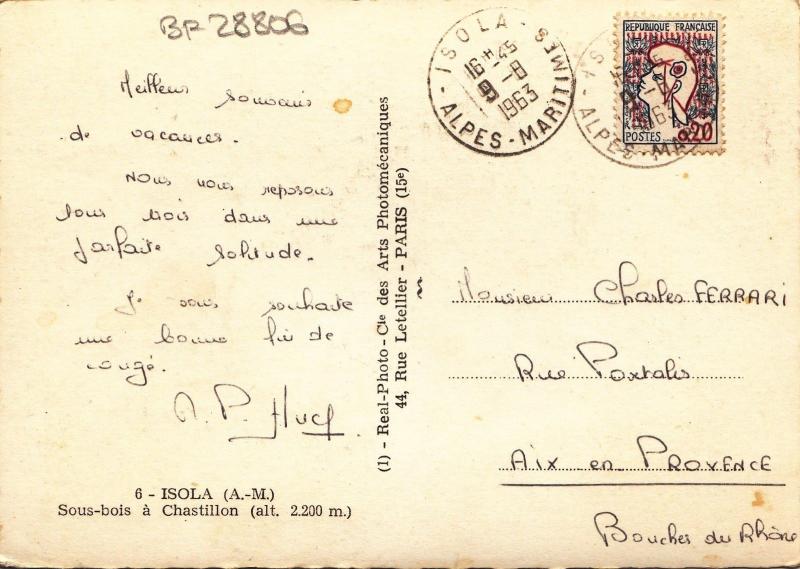 BF 28806
Meilleurs souvenirs
de vacances.
Nous nous reposons
tous trois dans une
parfaite solitude.
Je vous souhaite
une bonne fin de
congé.
6 - ISOLA (A.-M.)
Sous-bois à Chastillon (alt. 2.200 m.)
(1) - Real-Photo - Cie des Arts Photomécaniques
44, Rue Letellier - PARIS (15e)
ISOLA - ALPES-MARITIMES
16H-45
9-8
1963
REPUBLIQUE FRANÇAISE
POSTES 0,20
Monsieur Charles FERRARI
Rue Portalis
AIX en PROVENCE
Bouches du Rhône